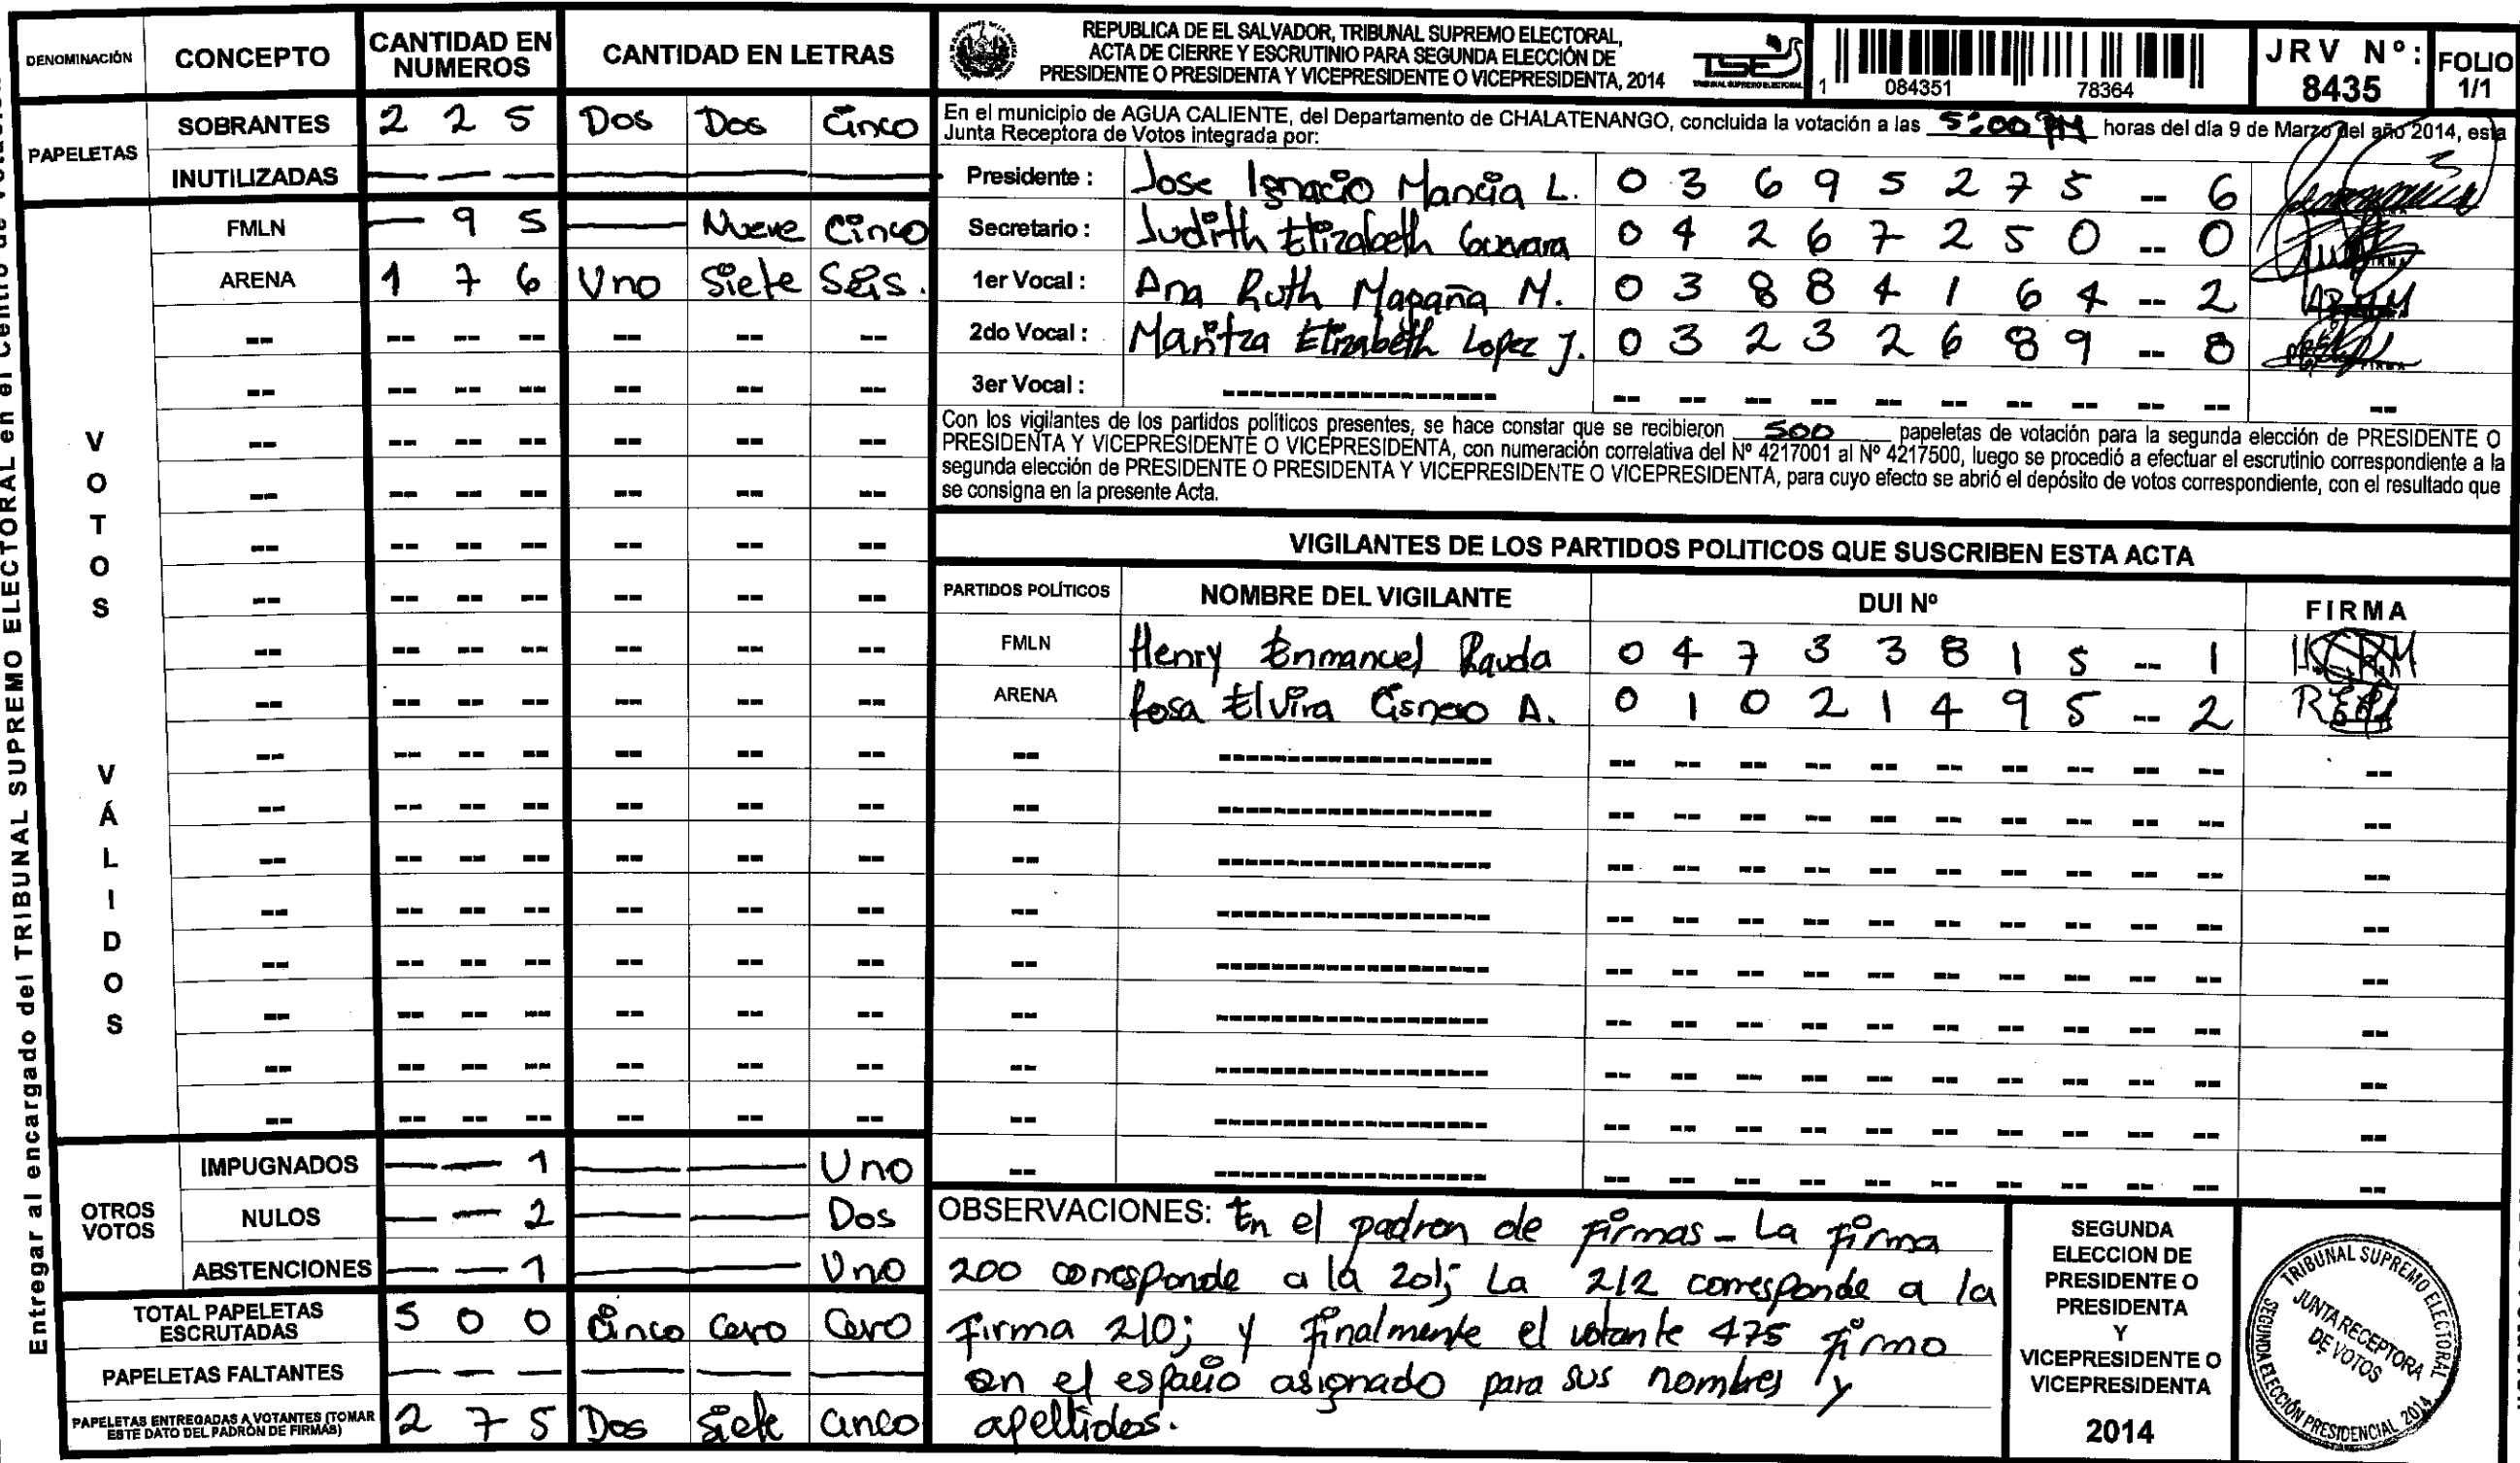 Entregar al encargado del TRIBUNAL SUPREMO ELECTORAL en el Centro de
DENOMINACIÓN CONCEPTO CANTIDAD EN NUMEROS CANTIDAD EN LETRAS
PAPELETAS
SOBRANTES 2 2 5 Dos Dos Cinco
INUTILIZADAS — — — — — —
VOTOS VÁLIDOS
FMLN — 9 5 — Nueve Cinco
ARENA 1 7 6 Uno Siete Seis.
OTROS VOTOS
IMPUGNADOS — — 1 — — Uno
NULOS — — 2 — — Dos
ABSTENCIONES — — 1 — — Uno
TOTAL PAPELETAS ESCRUTADAS 5 0 0 Cinco Cero Cero
PAPELETAS FALTANTES — — — — — —
PAPELETAS ENTREGADAS A VOTANTES (TOMAR ESTE DATO DEL PADRÓN DE FIRMAS) 2 7 5 Dos Siete Cinco
REPUBLICA DE EL SALVADOR, TRIBUNAL SUPREMO ELECTORAL,
ACTA DE CIERRE Y ESCRUTINIO PARA SEGUNDA ELECCIÓN DE
PRESIDENTE O PRESIDENTA Y VICEPRESIDENTE O VICEPRESIDENTA, 2014
TSE
TRIBUNAL SUPREMO ELECTORAL
1 084351 78364
JRV Nº: 8435
FOLIO 1/1
En el municipio de AGUA CALIENTE, del Departamento de CHALATENANGO, concluida la votación a las 5:00 PM horas del día 9 de Marzo del año 2014, esta
Junta Receptora de Votos integrada por:
Presidente : Jose Ignacio Mancia L. 0 3 6 9 5 2 7 5 -- 6
Secretario : Judith Elizabeth Guevara 0 4 2 6 7 2 5 0 -- 0
1er Vocal : Ana Ruth Magaña M. 0 3 8 8 4 1 6 4 -- 2
2do Vocal : Maritza Elizabeth Lopez J. 0 3 2 3 2 6 8 9 -- 8
3er Vocal : ------------------
Con los vigilantes de los partidos políticos presentes, se hace constar que se recibieron 500 papeletas de votación para la segunda elección de PRESIDENTE O
PRESIDENTA Y VICEPRESIDENTE O VICEPRESIDENTA, con numeración correlativa del Nº 4217001 al Nº 4217500, luego se procedió a efectuar el escrutinio correspondiente a la
segunda elección de PRESIDENTE O PRESIDENTA Y VICEPRESIDENTE O VICEPRESIDENTA, para cuyo efecto se abrió el depósito de votos correspondiente, con el resultado que
se consigna en la presente Acta.
VIGILANTES DE LOS PARTIDOS POLITICOS QUE SUSCRIBEN ESTA ACTA
PARTIDOS POLÍTICOS NOMBRE DEL VIGILANTE DUI Nº FIRMA
FMLN Henry Enmanuel Rauda 0 4 7 3 3 8 1 5 -- 1
ARENA Rosa Elvira Cisnero A. 0 1 0 2 1 4 9 5 -- 2
OBSERVACIONES: En el padron de firmas - La firma
200 corresponde a la 201; La 212 corresponde a la
firma 210; y finalmente el votante 475 firmo
en el espacio asignado para sus nombres y
apellidos.
SEGUNDA
ELECCION DE
PRESIDENTE O
PRESIDENTA
Y
VICEPRESIDENTE O
VICEPRESIDENTA
2014
TRIBUNAL SUPREMO ELECTORAL
JUNTA RECEPTORA
DE VOTOS
SEGUNDA ELECCIÓN PRESIDENCIAL 2014